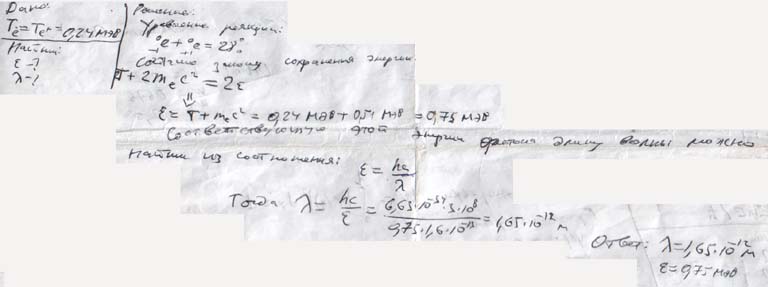 Дано:
Tē = Te⁺ = 0,24 МэВ
Найти:
ε - ?
λ - ?
Решение:
Уравнение реакции:
⁰₋₁e + ⁰₊₁e = 2γ⁰₀
Согласно закону сохранения энергии:
T + 2mₑc² = 2ε
⇓
ε = T + mₑc² = 0,24 МэВ + 0,51 МэВ = 0,75 МэВ
Соответствующую этой энергии фотона длину волны можно
найти из соотношения:
ε = hc/λ
Тогда λ = hc/ε = 6,63·10⁻³⁴·3·10⁸ / 0,75·1,6·10⁻¹³ = 1,65·10⁻¹² м
Ответ: λ = 1,65·10⁻¹² м
ε = 0,75 МэВ